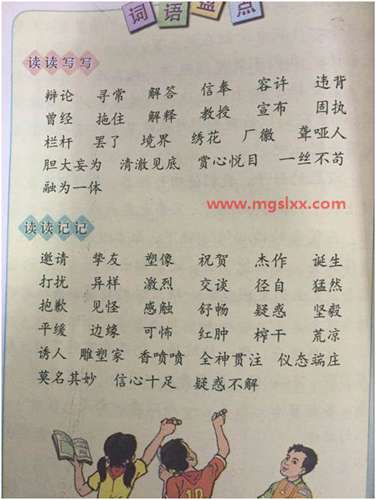 词语盘点
读读写写
辩论 寻常 解答 信奉 容许 违背
曾经 拖住 解释 教授 宣布 固执
栏杆 罢了 境界 绣花 厂徽 聋哑人
胆大妄为 清澈见底 赏心悦目 一丝不苟
融为一体
www.mgslxx.com
读读记记
邀请 挚友 塑像 祝贺 杰作 诞生
打扰 异样 激烈 交谈 径自 猛然
抱歉 见怪 感触 舒畅 疑惑 坚毅
平缓 边缘 可怖 红肿 榨干 荒凉
诱人 雕塑家 香喷喷 全神贯注 仪态端庄
莫名其妙 信心十足 疑惑不解